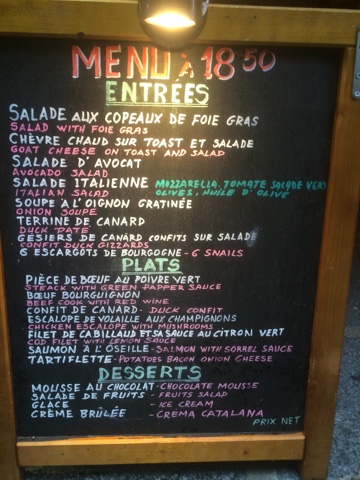 MENU à 18 50
ENTRÉES
SALADE AUX COPEAUX DE FOIE GRAS
SALAD WITH FOIE GRAS
CHÈVRE CHAUD SUR TOAST ET SALADE
GOAT CHEESE ON TOAST AND SALAD
SALADE D'AVOCAT
AVOCADO SALAD
SALADE ITALIENNE MOZZARELLA. TOMATE SALADE VERT
ITALIAN SALAD OLIVES. HUILE D'OLIVE
SOUPE A L'OIGNON GRATINÉE
ONION SOUPE
TERRINE DE CANARD
DUCK PATE
GESIERS DE CANARD CONFITS SUR SALADE
CONFIT DUCK GIZZARDS
6 ESCARGOTS DE BOURGOGNE - 6 SNAILS
PLATS
PIÈCE DE BŒUF AU POIVRE VERT
STEACK WITH GREEN PAPPER SAUCE
BŒUF BOURGUIGNON
BEEF COOK WITH RED WINE
CONFIT DE CANARD - DUCK CONFIT
ESCALOPE DE VOLAILLE AUX CHAMPIGNONS
CHICKEN ESCALOPE WITH MUSHROOMS
FILET DE CABILLAUD ET SA SAUCE AU CITRON VERT
COD FILET WITH LEMON SAUCE
SAUMON À L'OSEILLE - SALMON WITH SORREL SAUCE
TARTIFLETTE - POTATOES BACON ONION CHEESE
DESSERTS
MOUSSE AU CHOCOLAT - CHOCOLATE MOUSSE
SALADE DE FRUITS - FRUITS SALAD
GLACE - ICE CREAM
CRÈME BRÛLÉE - CRÉMA CATALANA
PRIX NET